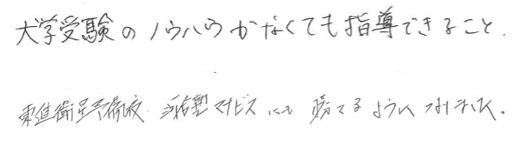 大学受験のノウハウがなくても指導できること.
東進衛星予備校 サービス にも 勝てるように なりました。